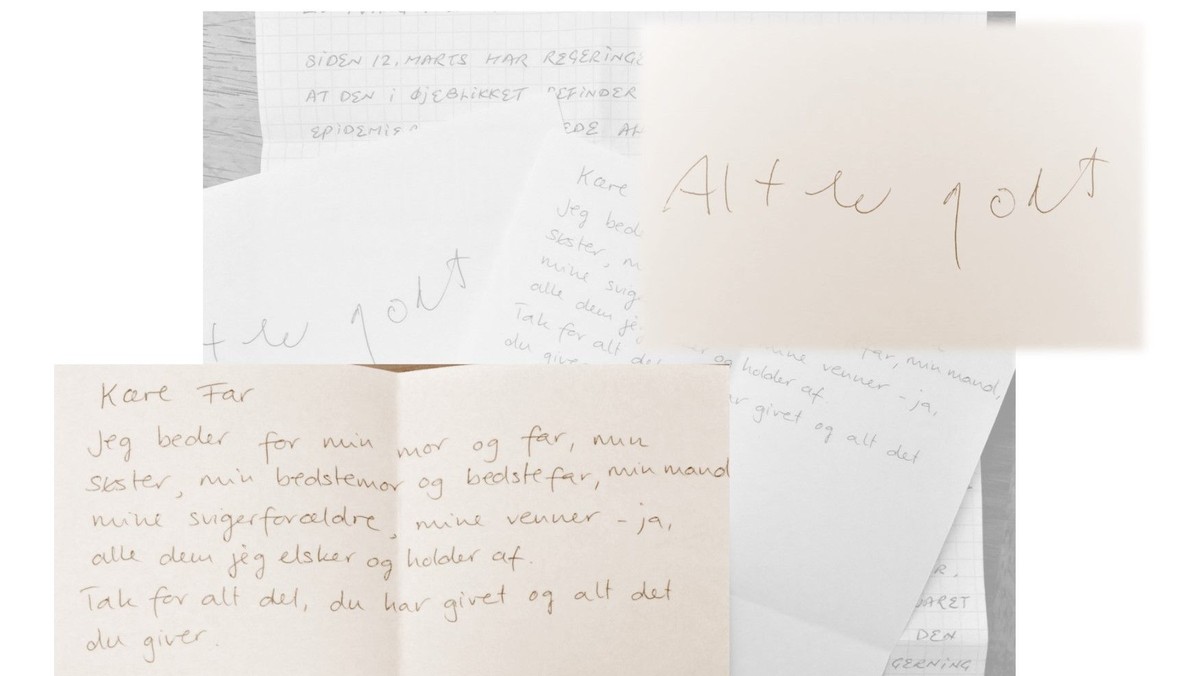 SIDEN 12. MARTS HAR
AT DEN I ØJEBLIKKET BEFINDER
Alt er godt
Kære
Jeg
søster,
mine
alle dem
Tak for alt det
er godt
far, min mand,
mine venner - ja,
og holder af
givet og alt det
Kære Far
Jeg beder for min mor og far, min
søster, min bedstemor og bedstefar, min mand
mine svigerforældre, mine venner - ja,
alle dem jeg elsker og holder af.
Tak for alt det, du har givet og alt det
du giver.
DEN
GERNING